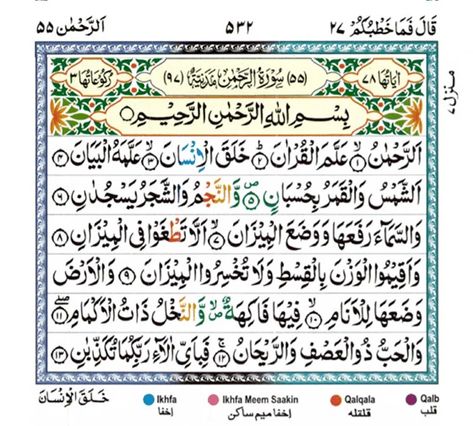 قَالَ فَمَا خَطْبُكُمْ ٢٧ ٥٣٢ اَلرَّحْمٰن ٥٥
منزل ٧
اٰيَاتُهَا ٧٨ (٥٥) سُوْرَةُ الرَّحْمٰنِ مَدَنِيَّةٌ (٩٧) رُكُوْعَاتُهَا ٣
بِسْمِ اللهِ الرَّحْمٰنِ الرَّحِيْمِ
اَلرَّحْمٰنُ ۙ﴿١﴾ عَلَّمَ الْقُرْاٰنَ ؕ﴿٢﴾ خَلَقَ الْاِنْسَانَ ۙ﴿٣﴾ عَلَّمَهُ الْبَيَانَ ﴿٤﴾
اَلشَّمْسُ وَالْقَمَرُ بِحُسْبَانٍ ۪﴿٥﴾ وَّالنَّجْمُ وَالشَّجَرُ يَسْجُدٰنِ ﴿٦﴾
وَالسَّمَآءَ رَفَعَهَا وَوَضَعَ الْمِيْزَانَ ۙ﴿٧﴾ اَلَّا تَطْغَوْا فِى الْمِيْزَانِ ﴿٨﴾
وَاَقِيْمُوا الْوَزْنَ بِالْقِسْطِ وَلَا تُخْسِرُوا الْمِيْزَانَ ﴿٩﴾ وَالْاَرْضَ
وَضَعَهَا لِلْاَنَامِ ۙ﴿١٠﴾ فِيْهَا فَاكِهَةٌ ۪ۙ وَّالنَّخْلُ ذَاتُ الْاَكْمَامِ ۖ﴿١١﴾
وَالْحَبُّ ذُو الْعَصْفِ وَالرَّيْحَانُ ۚ﴿١٢﴾ فَبِاَىِّ اٰلَآءِ رَبِّكُمَا تُكَذِّبٰنِ ﴿١٣﴾
خَلَقَ الْاِنْسَانَ
Ikhfa Ikhfa Meem Saakin Qalqala Qalb
اخفا اخفا میم ساکن قلقله قلب